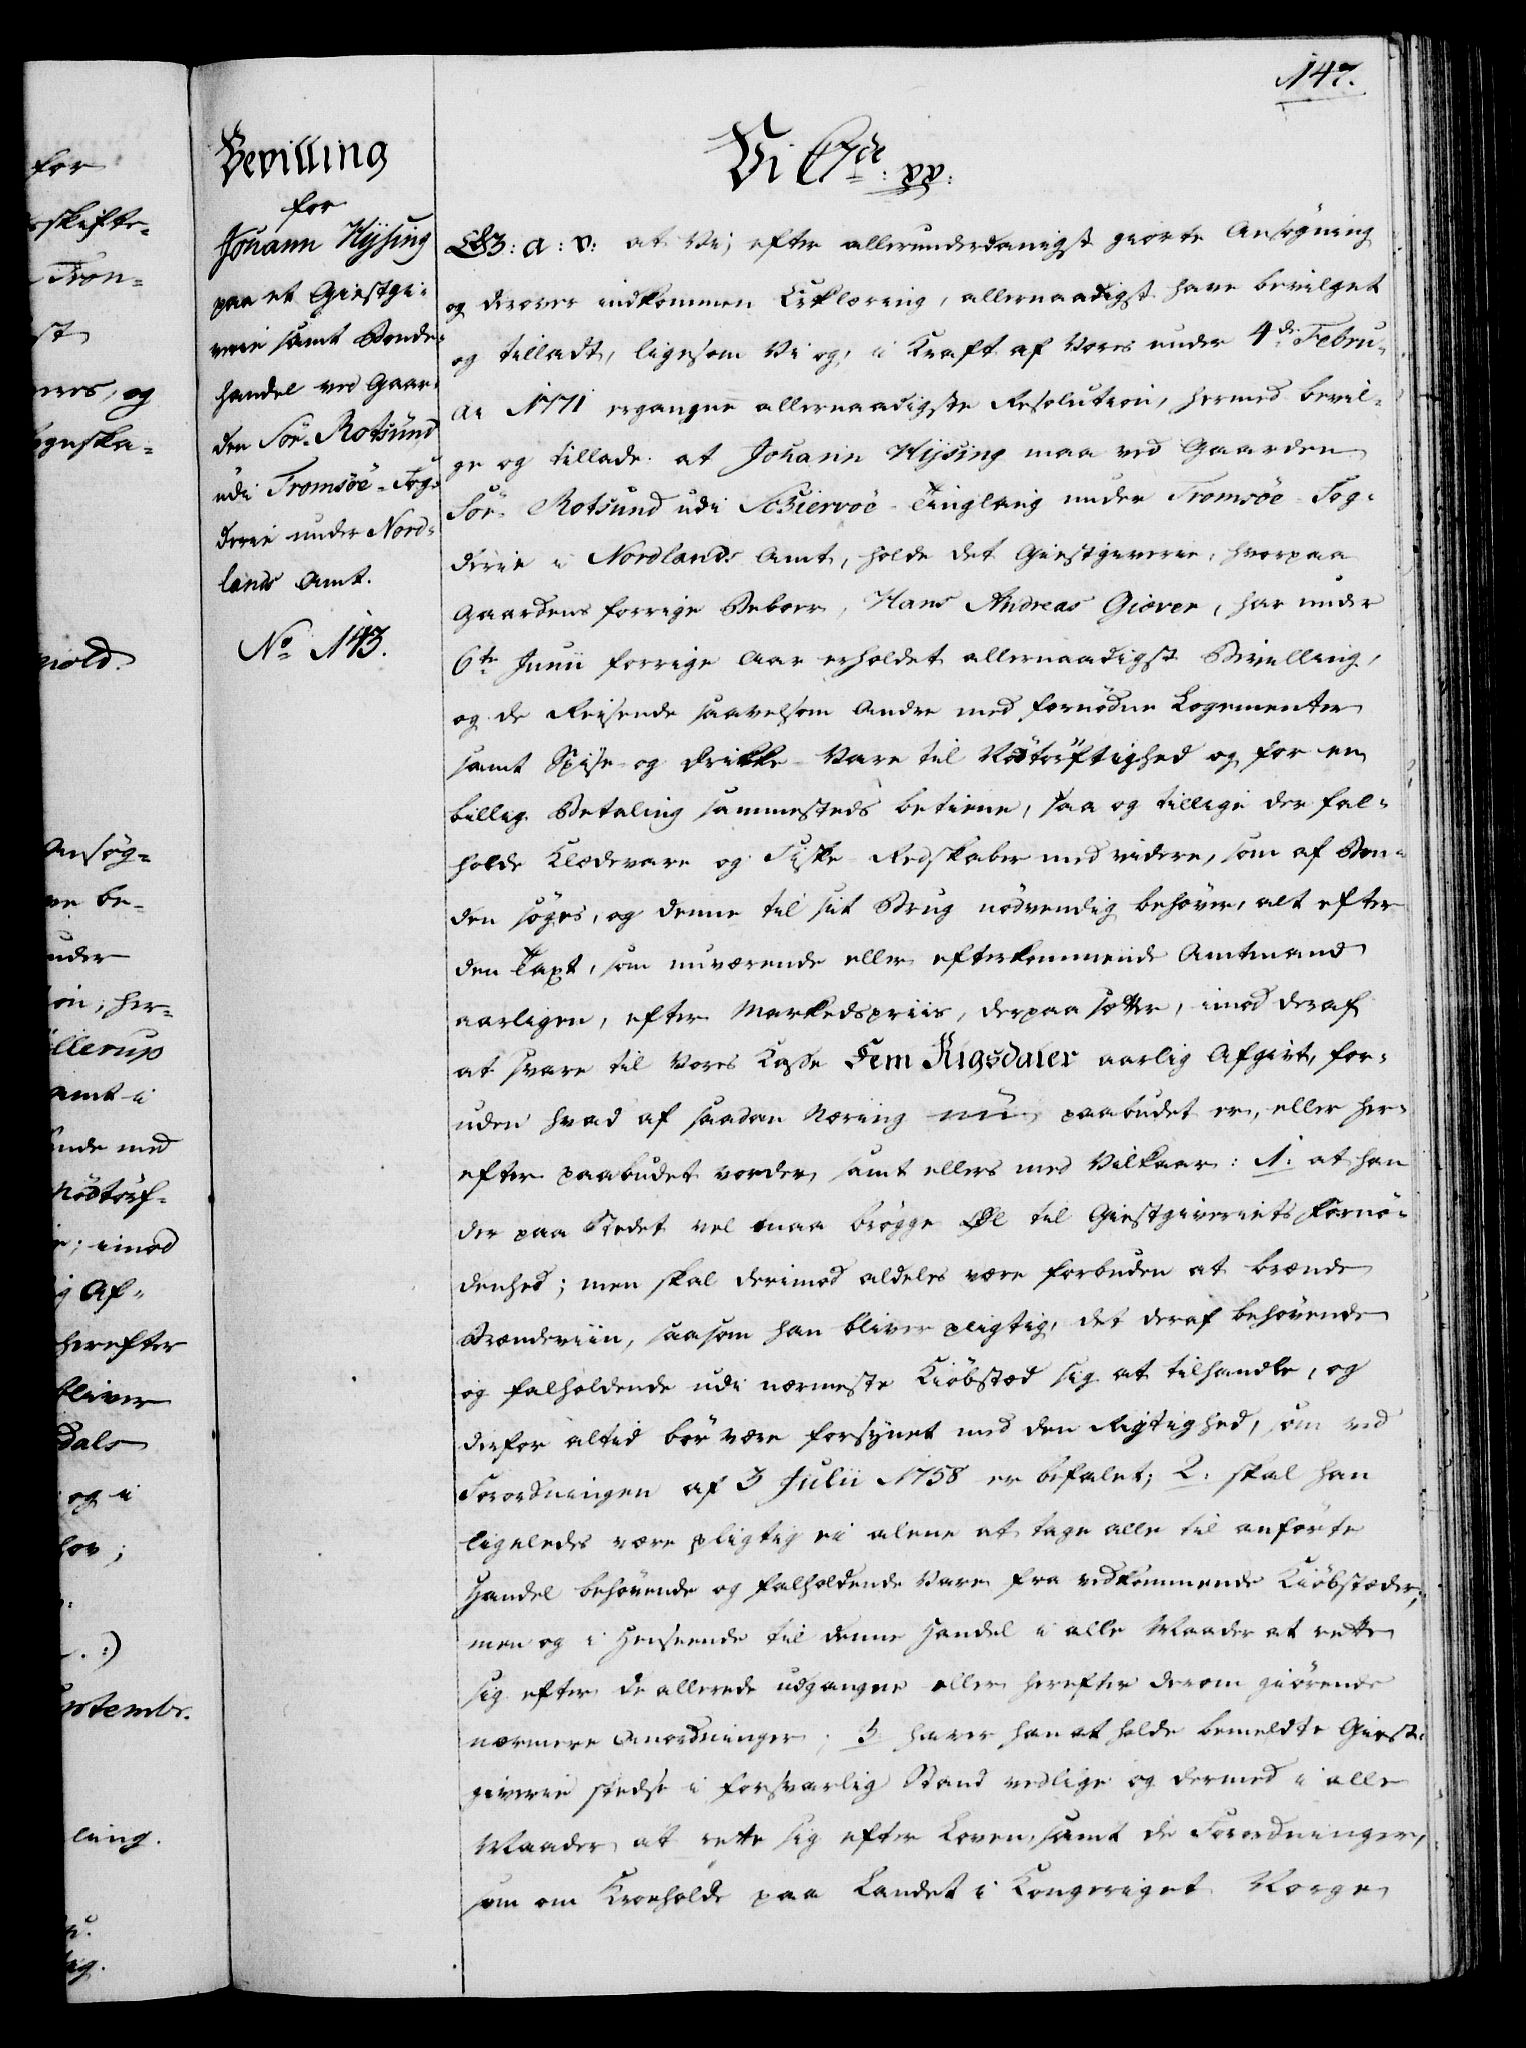 147.
Bevilling
for
Johann Hysing
paa et Giestgi-
verie samt Bonde-
handel ved Gaar-
den Sör-Rotsund
udi Tromsöe-Fog-
derie under Nord-
lands Amt.
No 143.
Vi C 7de: pp:
G: a: v: at Vi, efter allerunderdanigst giorte Ansøgning
og derover indkommen Erklæring, allernaadigst have bevilget
og tilladt, ligesom Vi og, i Kraft af Vores under 4de Febru-
ar 1771 ergangne allernaadigste Resolution, hermed bevil-
ge og tillade at Johann Hysing maa ved Gaarden
Sör-Rotsund udi Schiervöe-Tinglaug under Tromsöe-Fog-
derie i Nordlands Amt, holde det Giestgiverie, hvorpaa
Gaardens forrige Beboer, Hans Andreas Giæver, har under
6te Junii forrige Aar erholdet allernaadigst Bevilling,
og de Reisende saavelsom Andre med fornödne Logementer
samt Spise- og Drikke-Vare til Nödtörftighed og for en
billig Betaling sammesteds betiene, saa og tillige der fal-
holde Klædevare og Fiske-Redskaber med videre, som af Bon-
den søges, og denne til sit Brug nödvendig behöver, alt efter
den Taxt, som nuværende eller efterkommende Amtmand
aarligen, efter Markedspriis, derpaa sætter, imod deraf
at svare til Vores Kasse Fem Rigsdaler aarlig Afgivt, for-
uden hvad af saadan Næring nu paabudet er, eller her-
efter paabudet vorder, samt ellers med Vilkaar: 1. at han
der paa Stedet vel maa brögge Øl til Giestgiveriets Fornö-
denhed; men skal derimod aldeles være forbuden at brænde
Brændeviin, saasom han bliver pligtig, det deraf behövende
og falholdende udi nærmeste Kiöbstæd sig at tilhandle, og
derfor altid bör være forsynet med den Rigtighed, som ved
Forordningen af 3 Julii 1758 er befalet; 2. skal han
ligeledes være pligtig ei alene at tage alle til anförte
Handel behövende og falholdende Vare fra vedkommende Kiöbstæder,
men og i Henseende til denne Handel i alle Maader at rette
sig efter de allerede udgangne eller herefter derom giörende
nærmere Anordninger; 3. haver han at holde bemeldte Giest-
giverie stedse i forsvarlig Stand vedlige og dermed i alle
Maader at rette sig efter Loven, samt de Forordninger,
som om Kroehold paa Landet i Kongeriget Norge